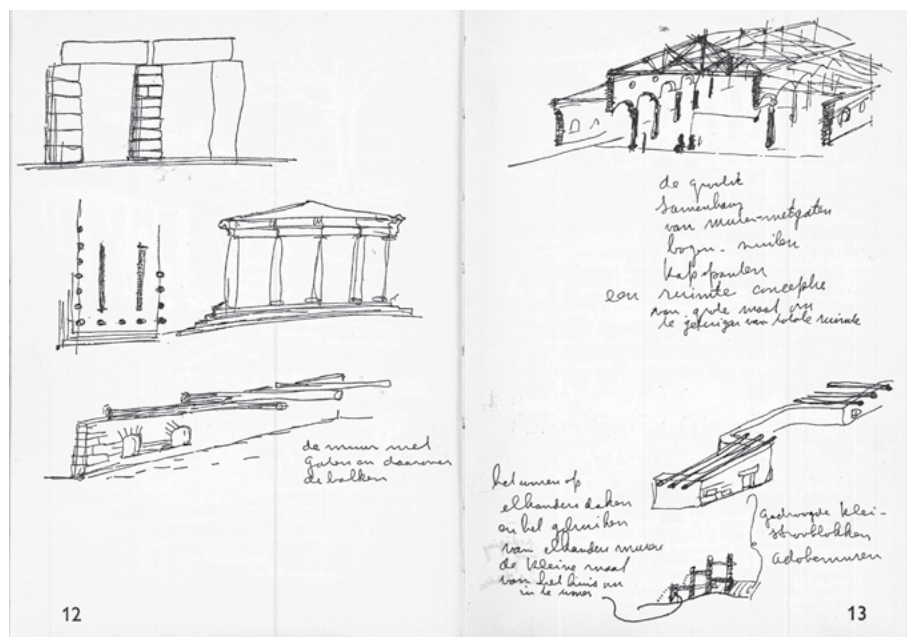 de muur met
gaten en daarover
de balken
12
de
samenhang
van muren-metgaten
bogen - zuilen
kapspanten
een ruimte conceptie
van grote maat om
te getuigen van totale ruimte
het wonen op
elkanders daken
en het gebruiken
van elkanders muren
de kleine maat
van het huis om
in te wonen
Gedroogde klei-
stroblokken
adobemuren
13